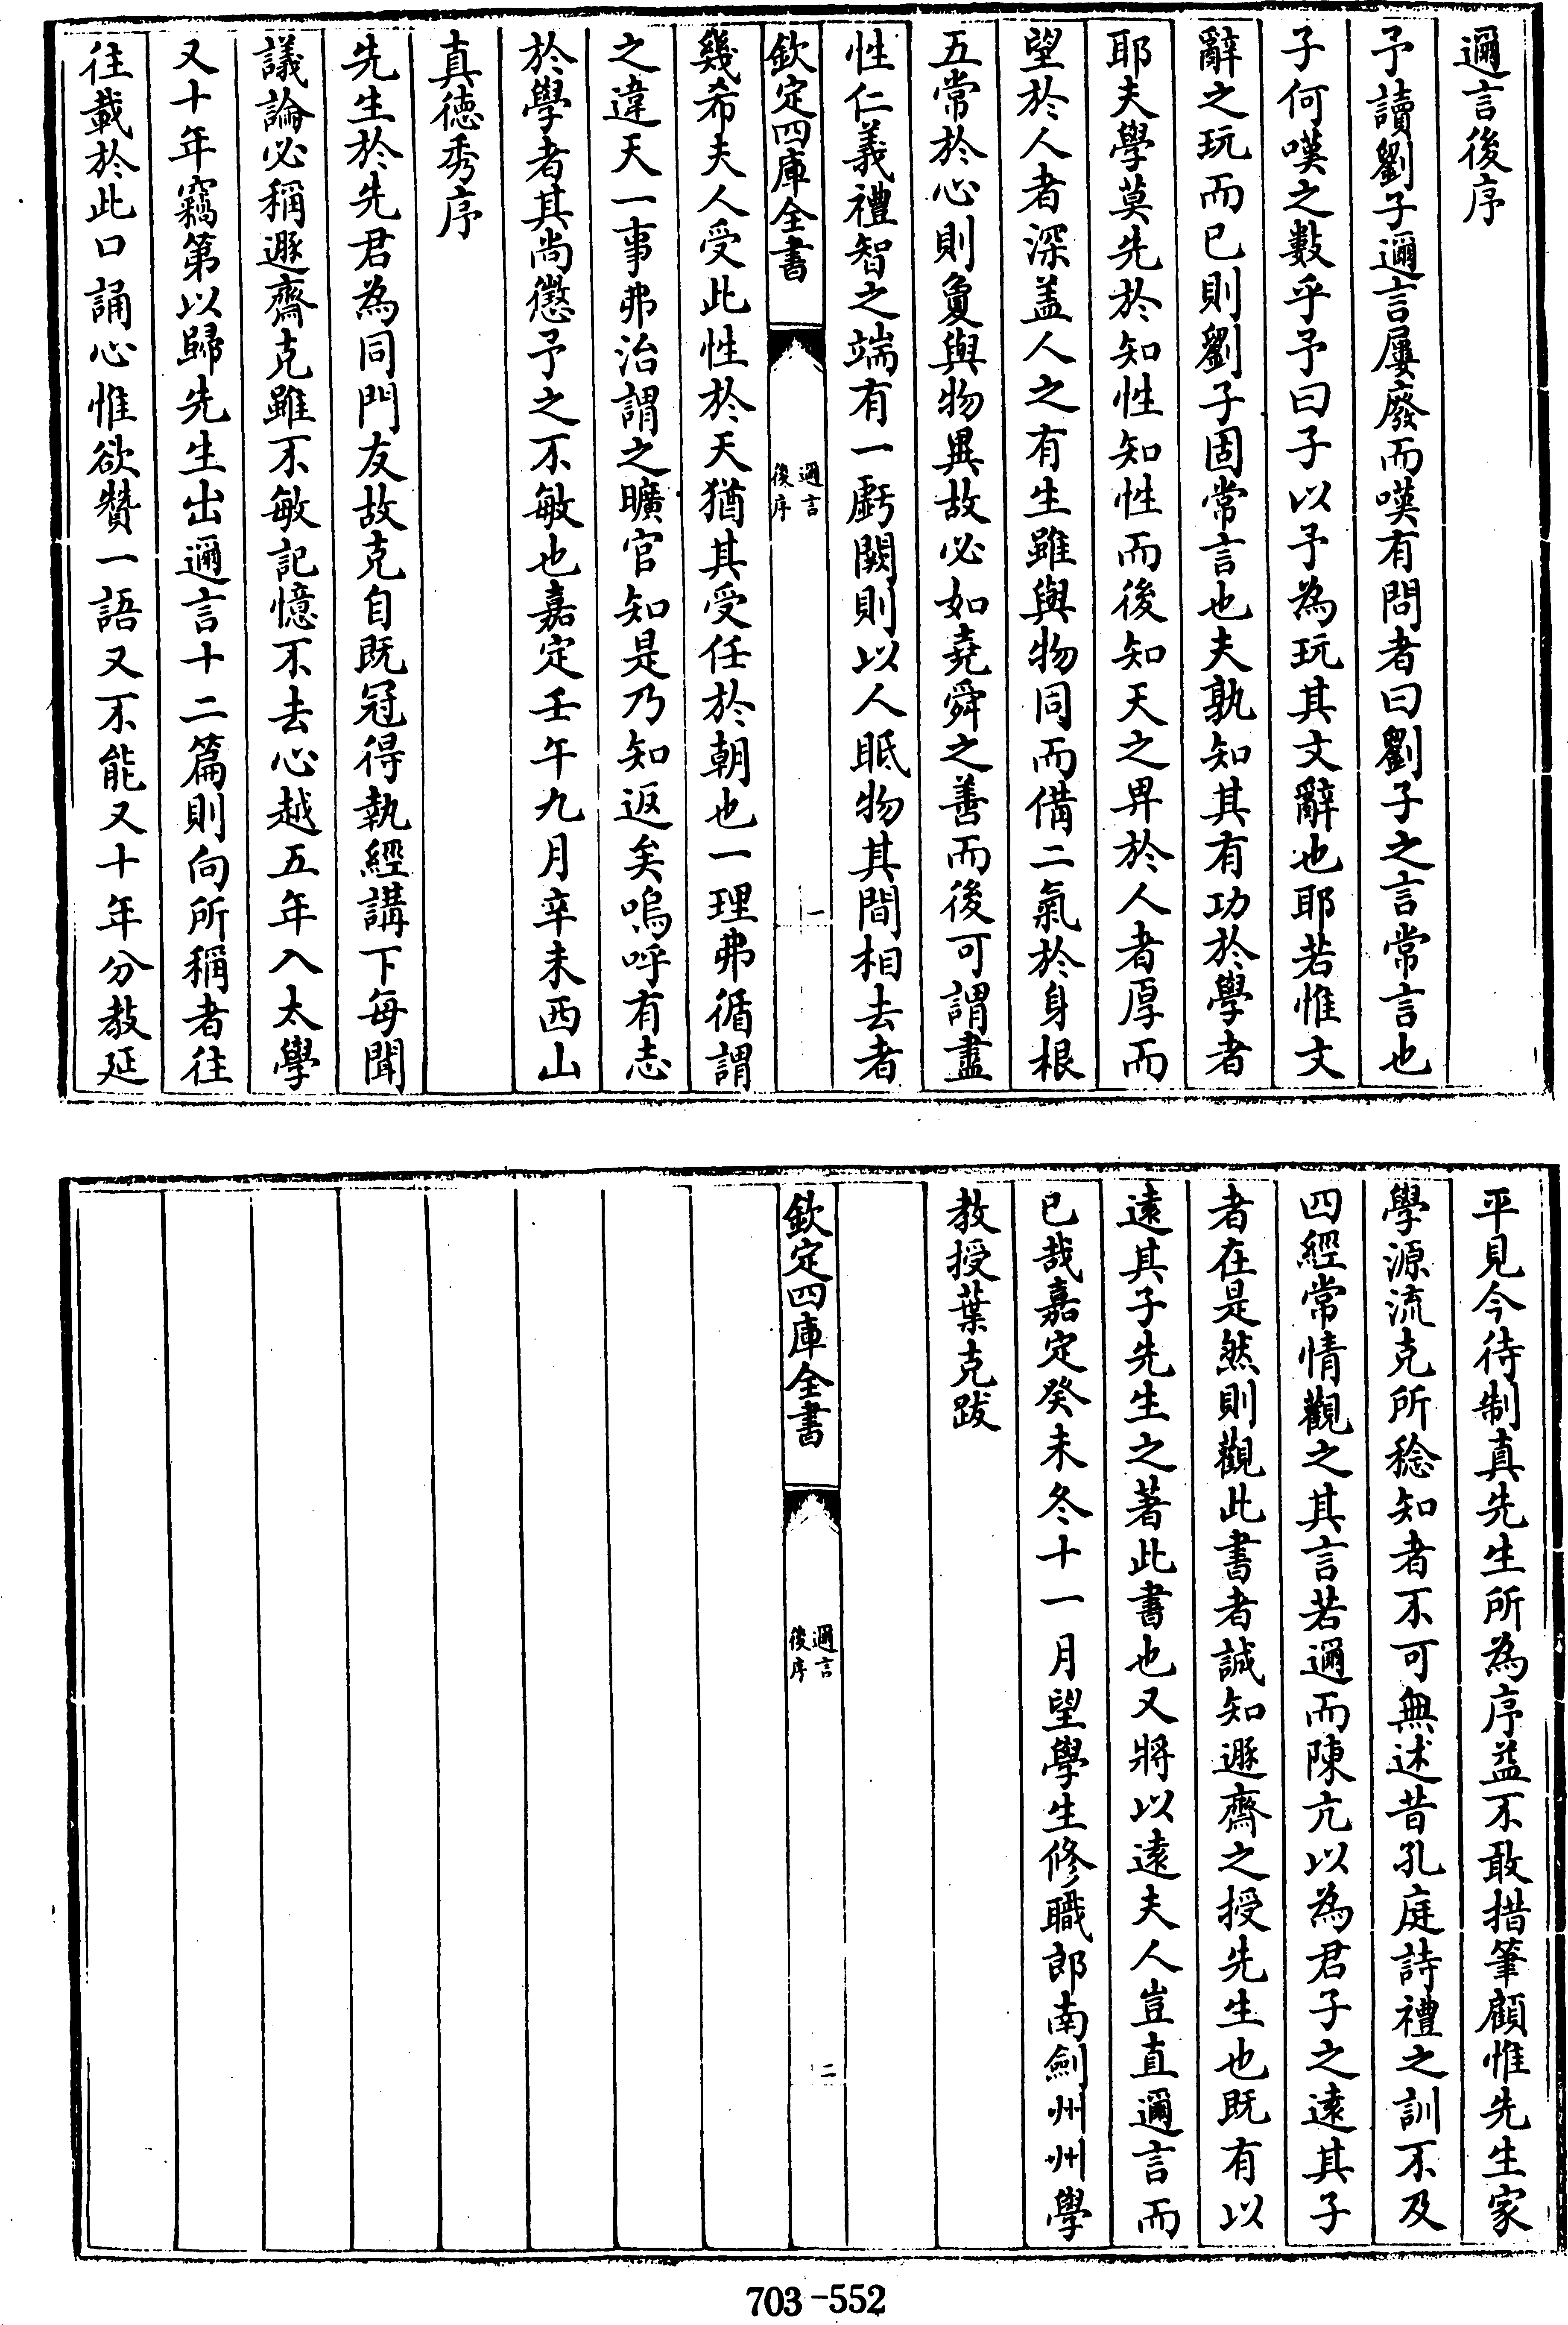 邇言後序
予讀劉子邇言屢廢而嘆有問者曰劉子之言常言也
子何嘆之數乎予曰子以予為玩其文辭也耶若惟文
辭之玩而已則劉子固常言也夫孰知其有功於學者
耶夫學莫先於知性知性而後知天之畀於人者厚而
望於人者深盖人之有生雖與物同而備二氣於身根
五常於心則敻與物異故必如堯舜之善而後可謂盡
性仁義禮智之端有一虧闕則以人眂物其間相去者
欽定四庫全書
邇言
後序
一
幾希夫人受此性於天猶其受任於朝也一理弗循謂
之違天一事弗治謂之曠官知是乃知返矣嗚呼有志
於學者其尚懲予之不敏也嘉定壬午九月辛未西山
真德秀序
先生於先君為同門友故克自既冠得執經講下每聞
議論必稱遯齋克雖不敏記憶不去心越五年入太學
又十年竊第以歸先生出邇言十二篇則向所稱者往
往載於此口誦心惟欲贊一語又不能又十年分教延
平見今待制真先生所為序益不敢措筆顧惟先生家
學源流克所稔知者不可無述昔孔庭詩禮之訓不及
四經常情觀之其言若邇而陳亢以為君子之遠其子
者在是然則觀此書者誠知遯齋之授先生也既有以
遠其子先生之著此書也又將以遠夫人豈直邇言而
已哉嘉定癸未冬十一月望學生修職郎南劍州州學
教授葉克跋
欽定四庫全書
邇言
後序
二
703-552